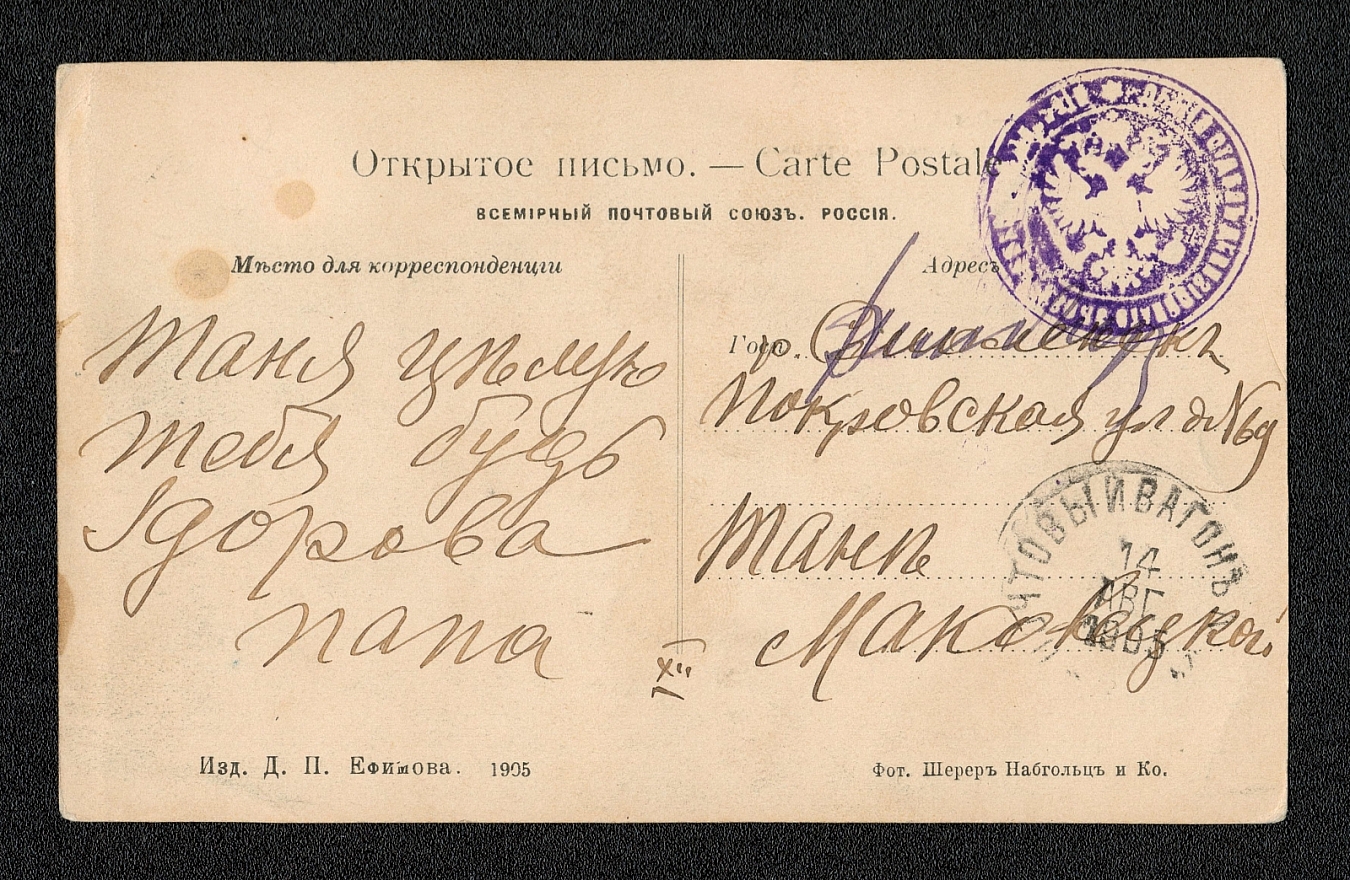 Открытое письмо. — Carte Postale
ВСЕМІРНЫЙ ПОЧТОВЫЙ СОЮЗЪ. РОССІЯ.
Мѣсто для корреспонденціи
Адресъ
Таня цѣлую
тебя будь
здорова
папа
Покровская ул д №69
Танѣ
Маковецкой
ЧТОВЫЙ ВАГОНЪ
14
АВГ
1905
Изд. Д. П. Ефимова. 1905
Фот. Шереръ Набгольцъ и Ко.